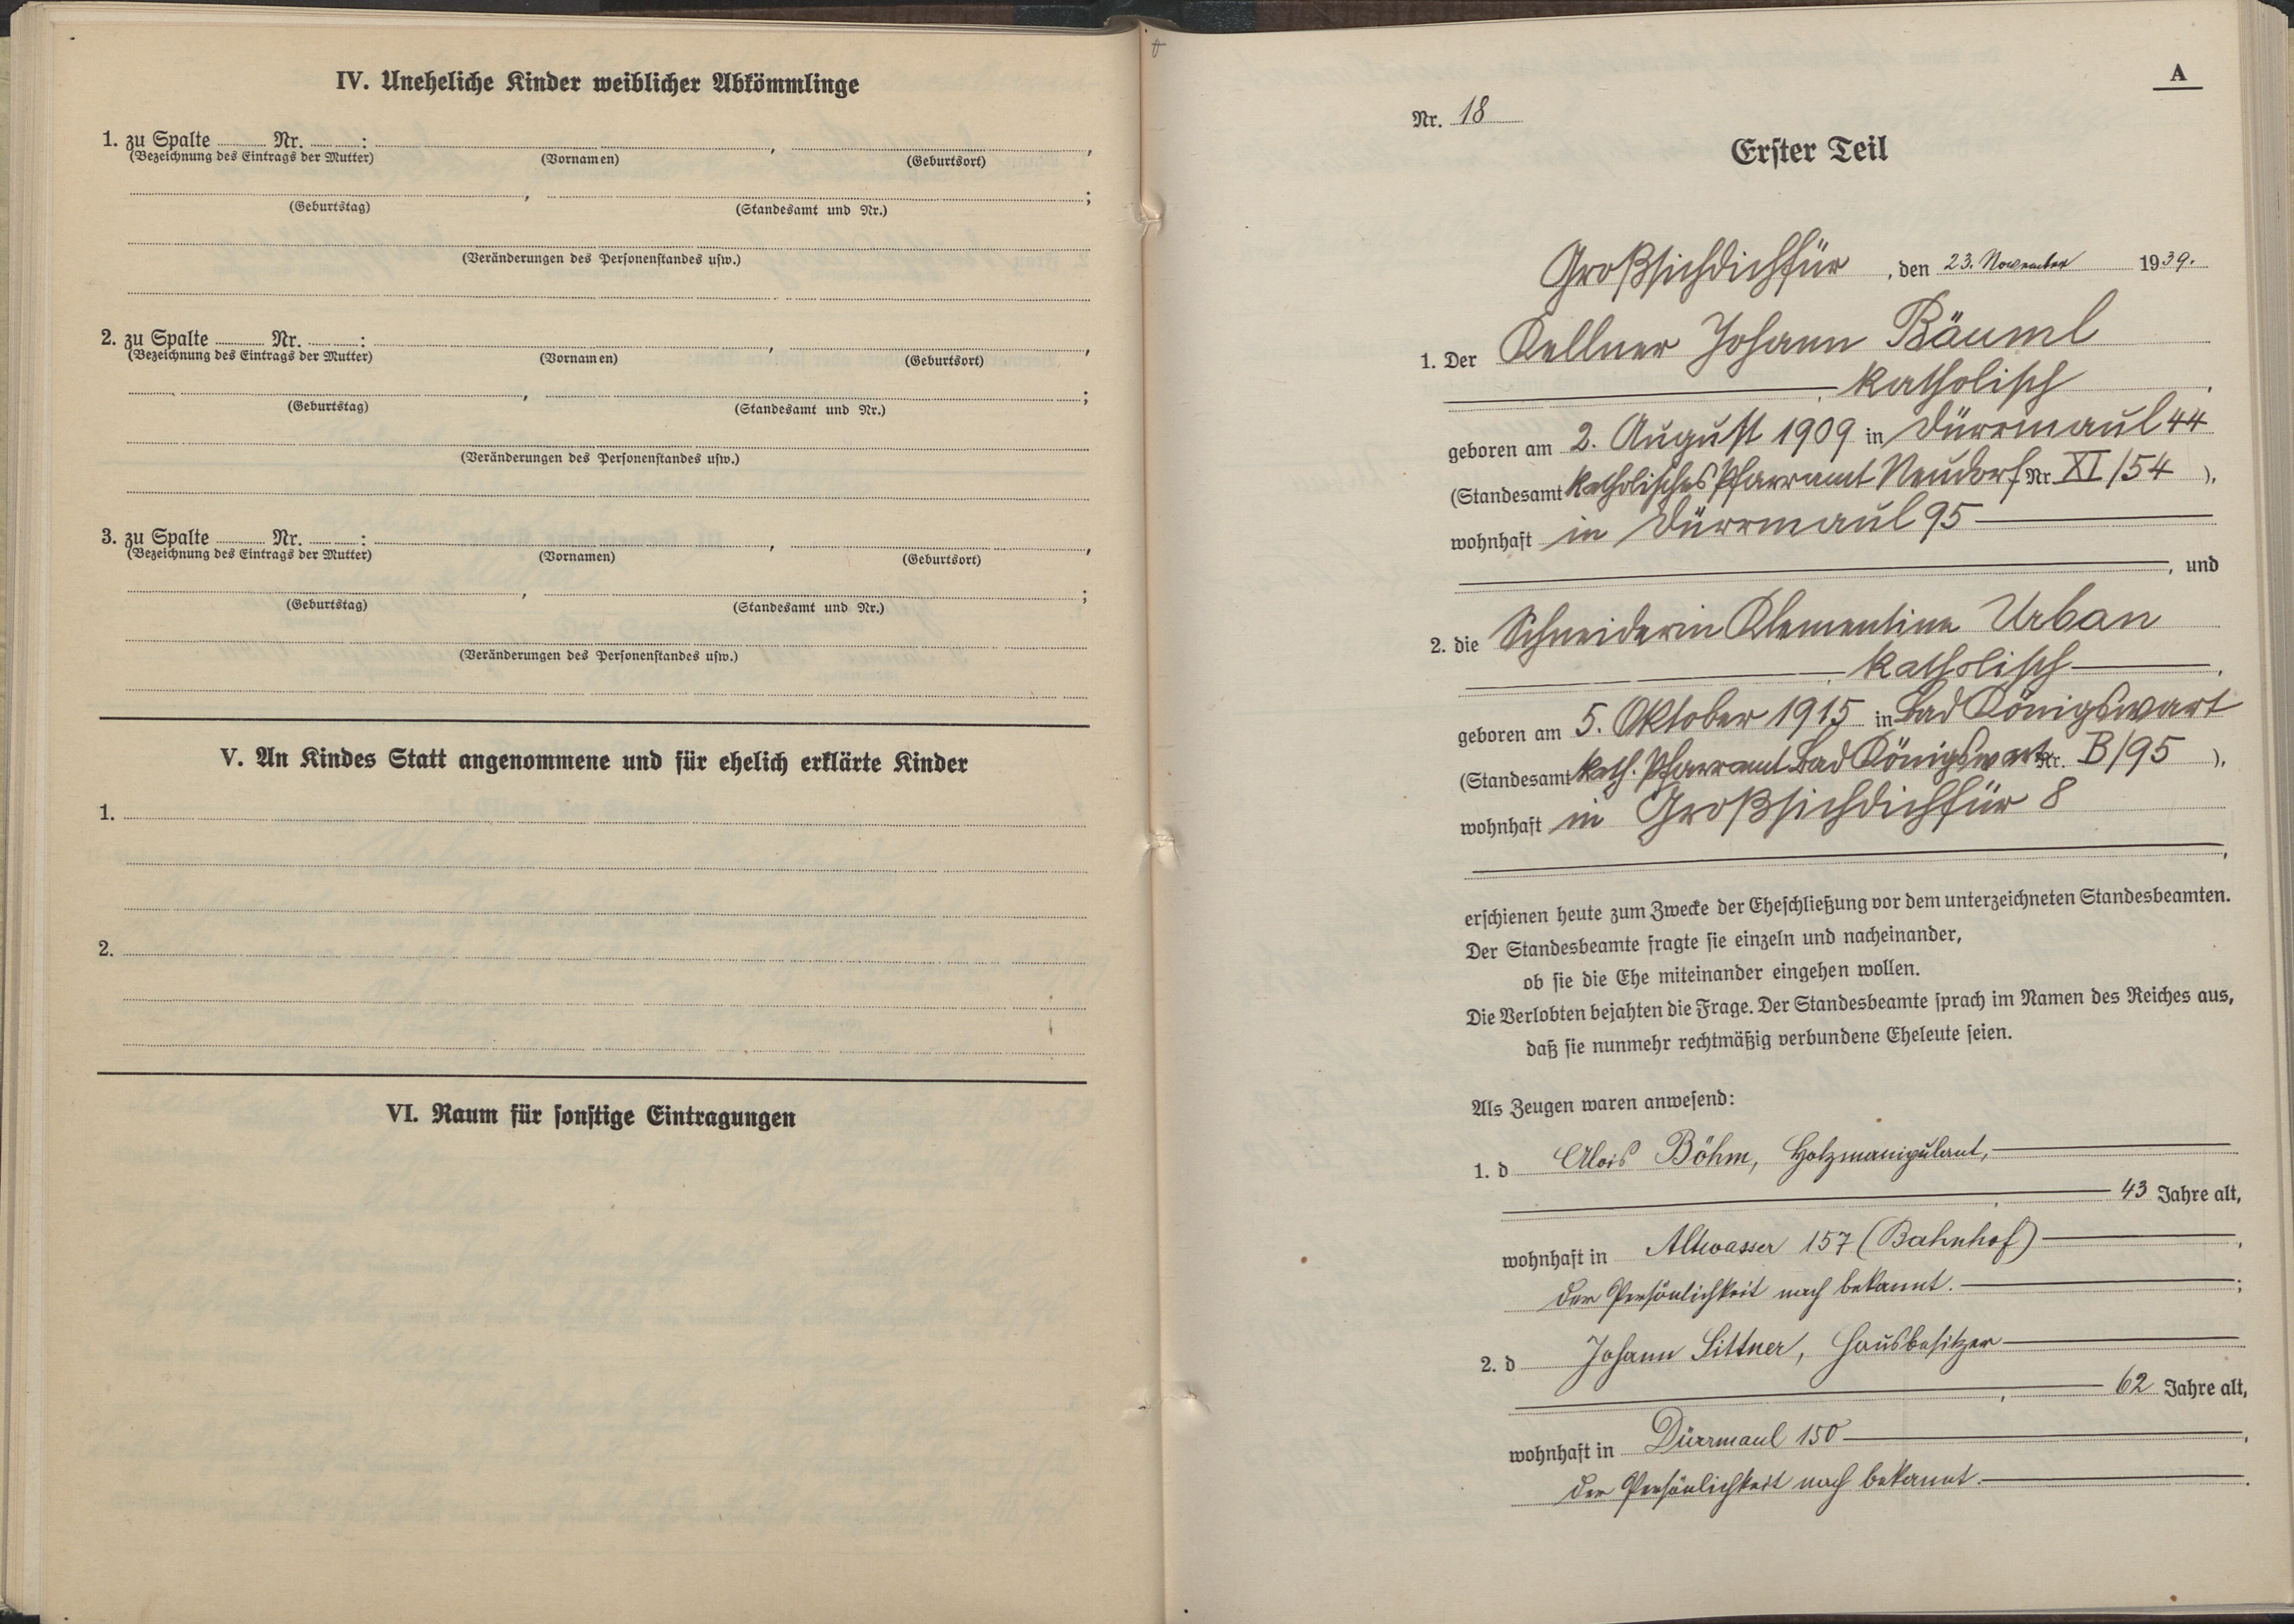 IV. Uneheliche Kinder weiblicher Abkömmlinge
1. zu Spalte Nr. : , ,
(Bezeichnung des Eintrags der Mutter) (Vornamen) (Geburtsort)
, ;
(Geburtstag) (Standesamt und Nr.)
(Veränderungen des Personenstandes usw.)
2. zu Spalte Nr. : , ,
(Bezeichnung des Eintrags der Mutter) (Vornamen) (Geburtsort)
, ;
(Geburtstag) (Standesamt und Nr.)
(Veränderungen des Personenstandes usw.)
3. zu Spalte Nr. : , ,
(Bezeichnung des Eintrags der Mutter) (Vornamen) (Geburtsort)
, ;
(Geburtstag) (Standesamt und Nr.)
(Veränderungen des Personenstandes usw.)
V. An Kindes Statt angenommene und für ehelich erklärte Kinder
1.
2.
VI. Raum für sonstige Eintragungen
A
Nr. 18
Erster Teil
Großsichdichfür, den 23. November 1939.
1. Der Kellner Johann Bäuml
, katholisch,
geboren am 2. August 1909 in Dürrmaul 44
(Standesamt Katholisches Pfarramt Neudorf Nr. XI/54),
wohnhaft in Dürrmaul 95
, und
2. die Schneiderin Klementine Urban
, katholisch,
geboren am 5. Oktober 1915 in Bad Königswart
(Standesamt kath. Pfarramt Bad Königswart Nr. B/95),
wohnhaft in Großsichdichfür 8
,
erschienen heute zum Zwecke der Eheschließung vor dem unterzeichneten Standesbeamten.
Der Standesbeamte fragte sie einzeln und nacheinander,
ob sie die Ehe miteinander eingehen wollen.
Die Verlobten bejahten die Frage. Der Standesbeamte sprach im Namen des Reiches aus,
daß sie nunmehr rechtmäßig verbundene Eheleute seien.
Als Zeugen waren anwesend:
1. d Alois Böhm, Holzmanipulant,
, 43 Jahre alt,
wohnhaft in Altwasser 157 (Bahnhof),
der Persönlichkeit nach bekannt. ;
2. d Johann Sittner, Hausbesitzer
, 62 Jahre alt,
wohnhaft in Dürrmaul 150,
der Persönlichkeit nach bekannt. .